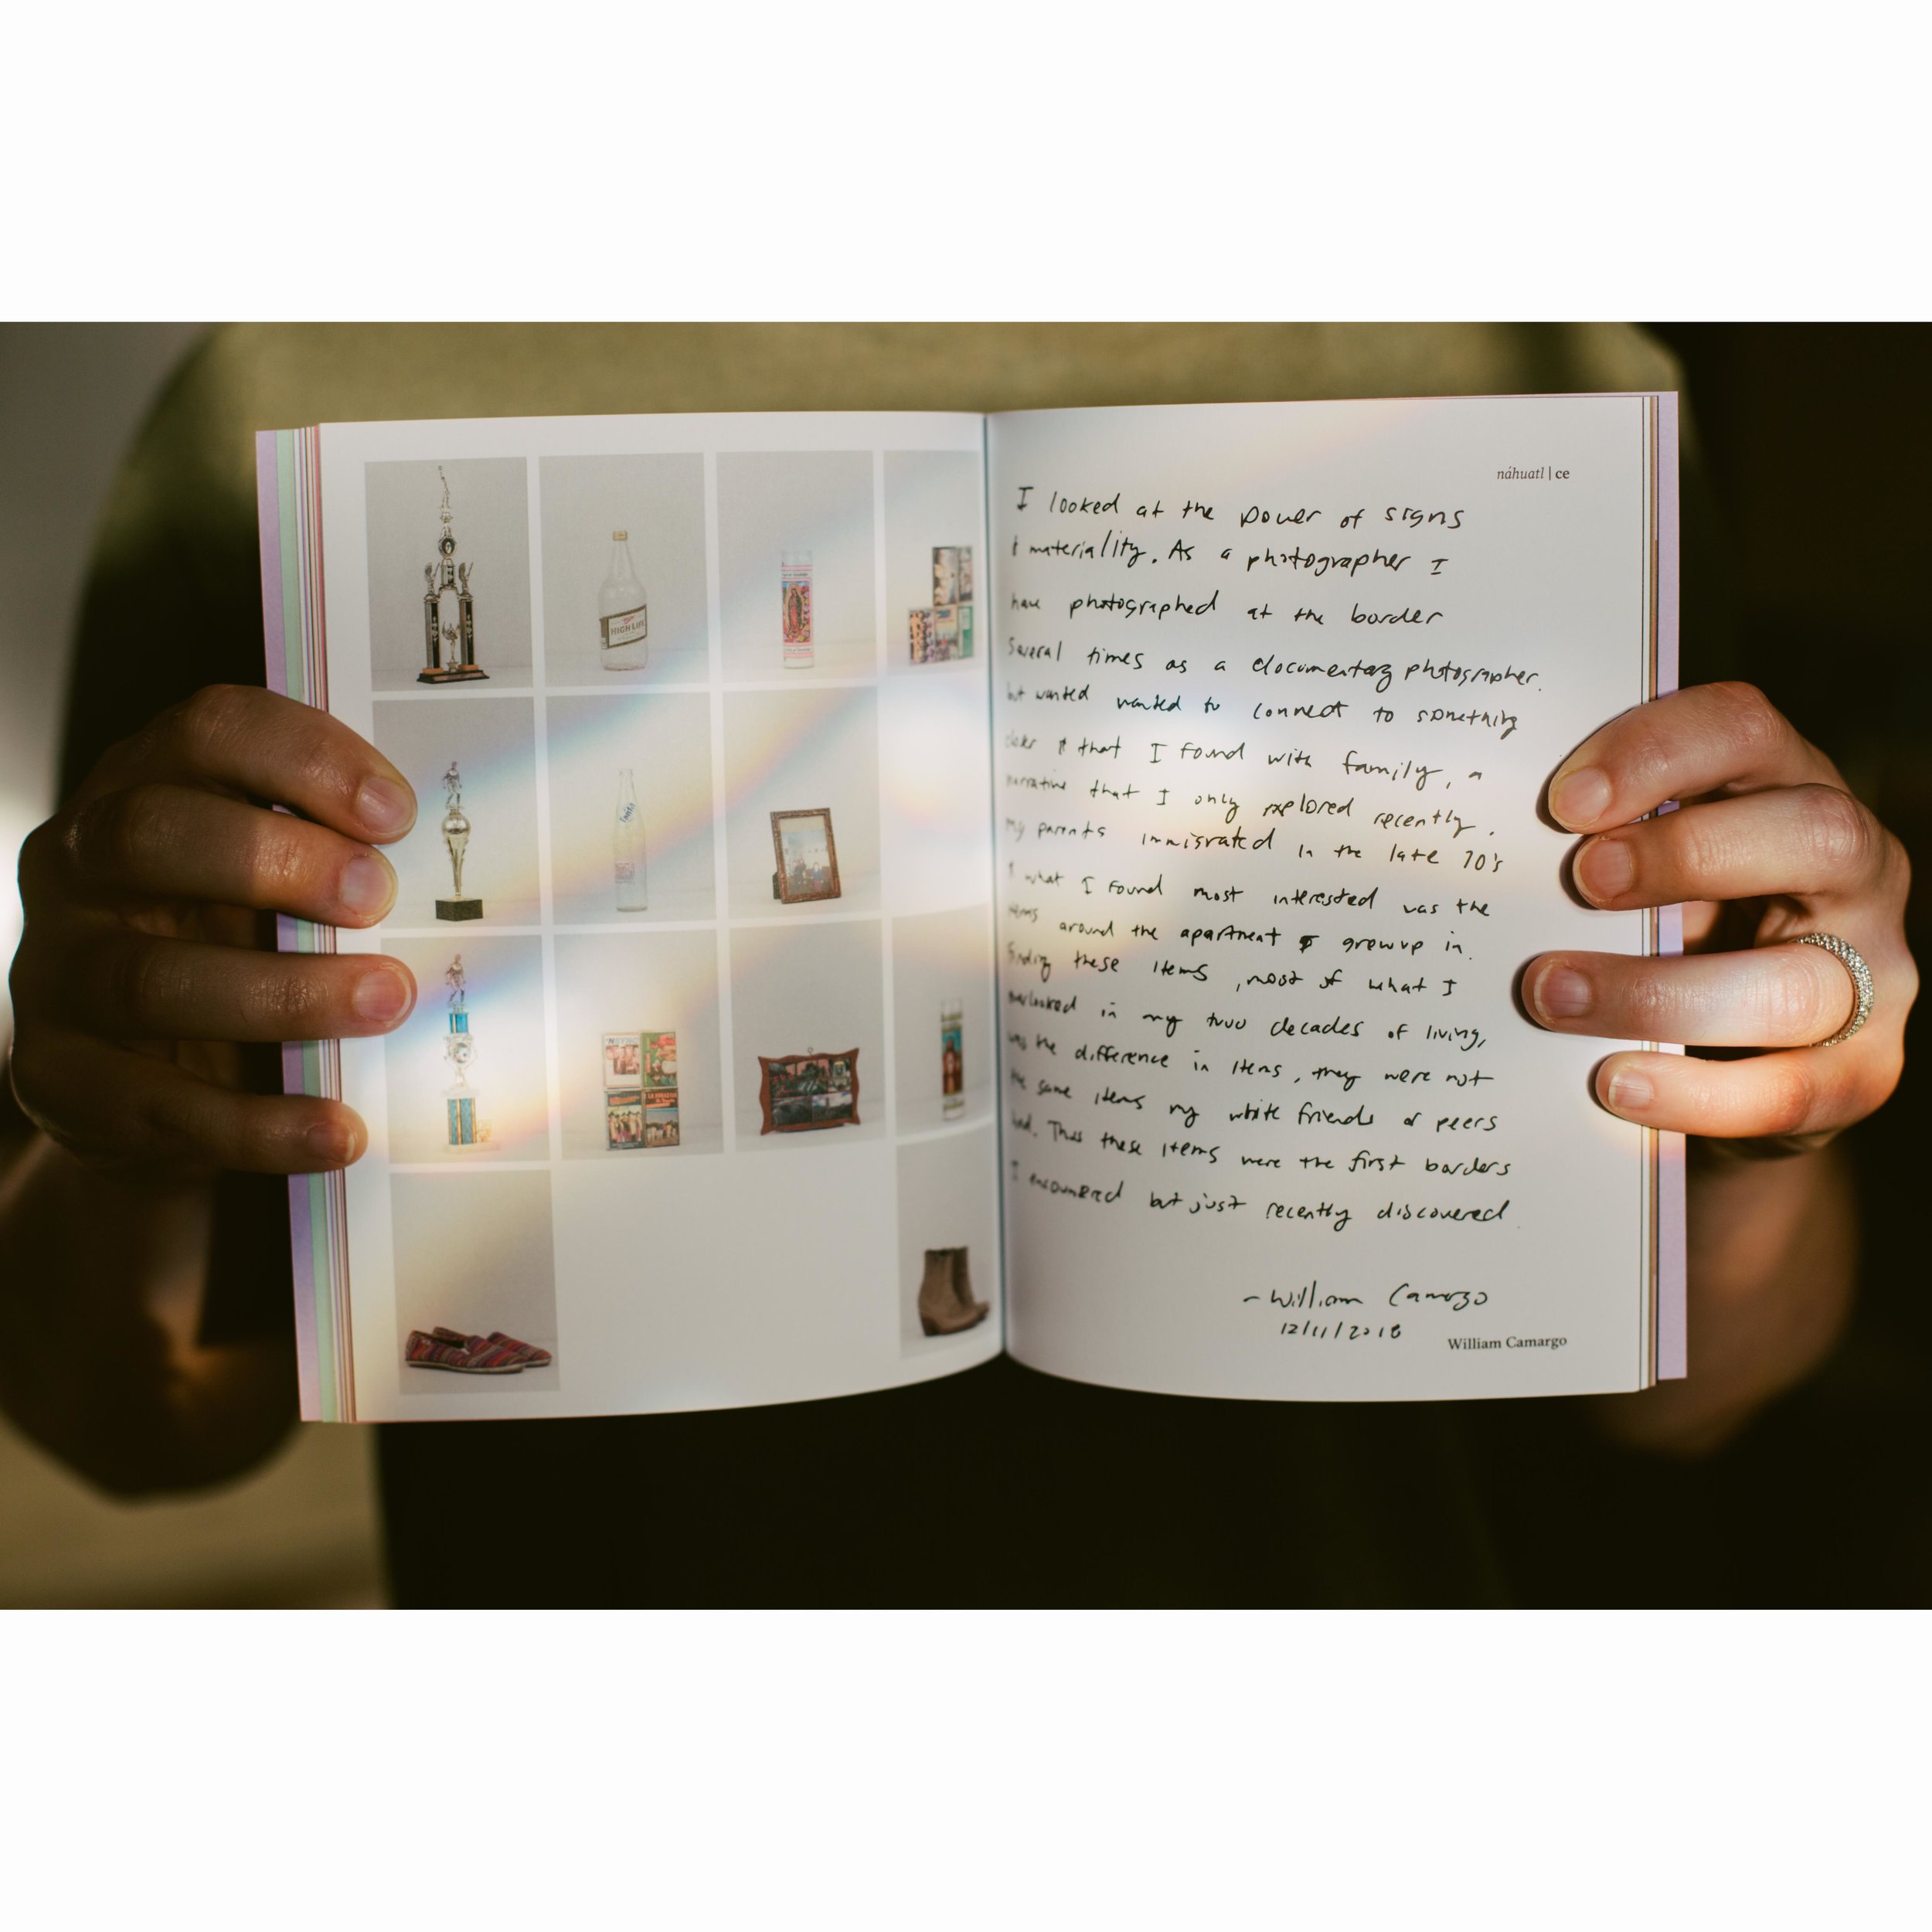 HIGH LIFE
Fanta
'NSYNC
náhuatl | ce
I looked at the power of signs
& materiality. As a photographer I
have photographed at the border
several times as a documentary photographer.
but wanted wanted to connect to something
& that I found with family, a
narrative that I only explored recently.
My parents immigrated in the late 70's
& what I found most interested was the
items around the apartment I grew up in.
Finding these items, most of what I
overlooked in my two decades of living,
was the difference in items, they were not
the same items my white friends or peers
had. Thus these items were the first borders
I encountered but just recently discovered
- William Camargo
12/11/2018
William Camargo